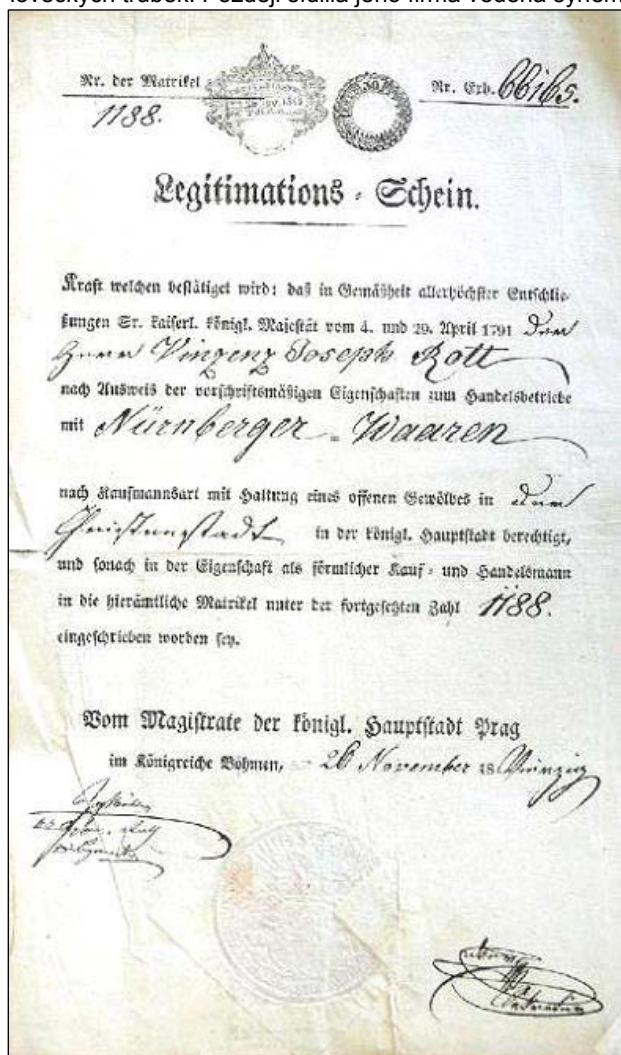 Nr. der Matrikel
1188.
Nr. Exh. 66165.
30
Legitimations-Schein.
Kraft welchen bestätiget wird: daß in Gemäßheit allerhöchster Entschlie-
ßungen Sr. kaiserl. königl. Majestät vom 4. und 29. April 1791 Der
Herr Vinzenz Joseph Rott
nach Ausweis der vorschriftsmäßigen Eigenschaften zum Handelsbetriebe
mit Nürnberger-Waaren
nach Kaufmannsart mit Haltung eines offenen Gewölbes in
in der königl. Hauptstadt berechtigt,
und sonach in der Eigenschaft als förmlicher Kauf- und Handelsmann
in die hierämtliche Matrikel unter der fortgesetzten Zahl 1188.
eingeschrieben worden sey.
Vom Magistrate der königl. Hauptstadt Prag
im Königreiche Böhmen, 26 November 18